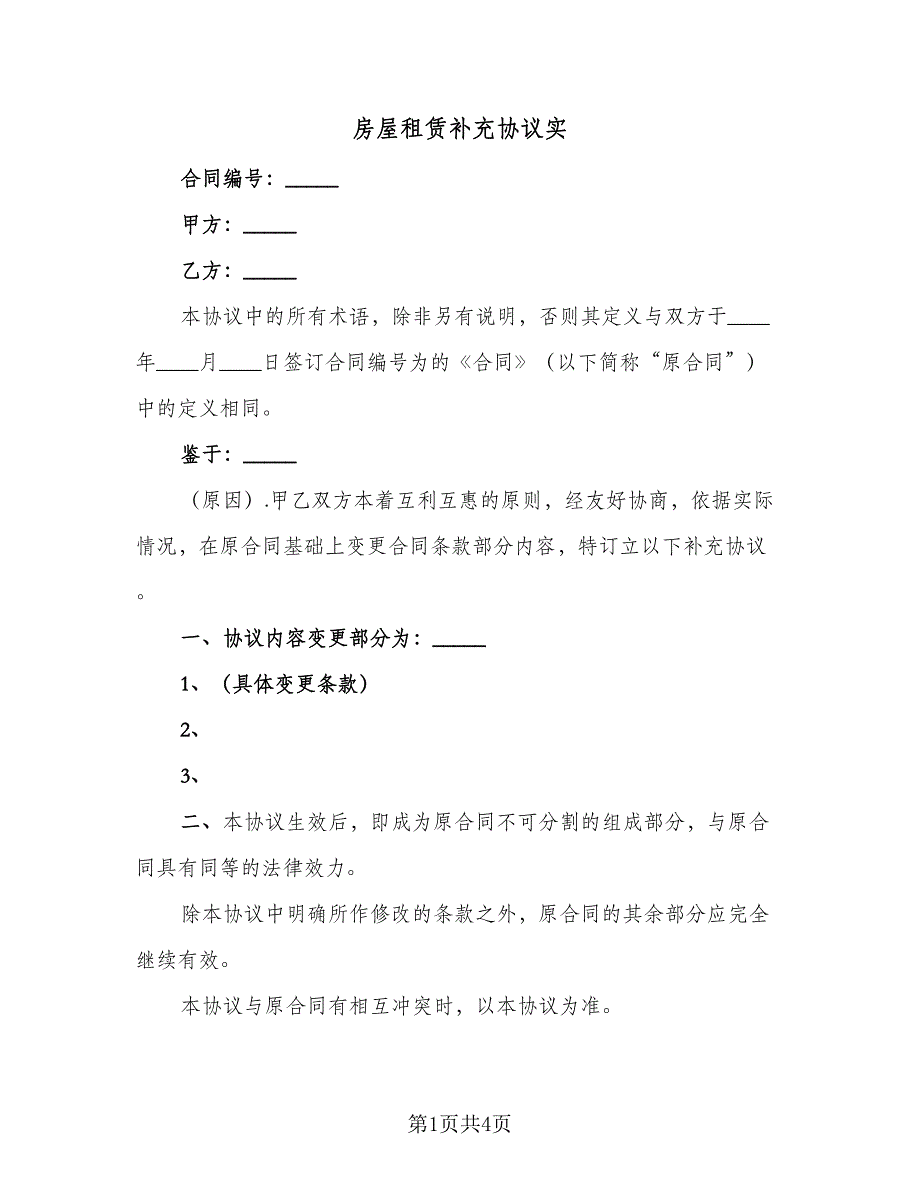 房屋租赁补充协议实
合同编号：_____
甲方：_____
乙方：_____
本协议中的所有术语，除非另有说明，否则其定义与双方于____
年____月____日签订合同编号为的《合同》（以下简称“原合同”）
中的定义相同。
鉴于：_____
（原因）.甲乙双方本着互利互惠的原则，经友好协商，依据实际
情况，在原合同基础上变更合同条款部分内容，特订立以下补充协议
。
一、协议内容变更部分为：_____
1、（具体变更条款）
2、
3、
二、本协议生效后，即成为原合同不可分割的组成部分，与原合
同具有同等的法律效力。
除本协议中明确所作修改的条款之外，原合同的其余部分应完全
继续有效。
本协议与原合同有相互冲突时，以本协议为准。
第1页共4页